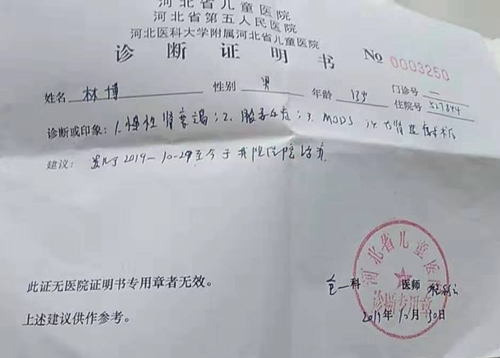 河北省儿童医院
河北省第五人民医院
河北医科大学附属河北省儿童医院
诊断证明书 No 0003250
姓名 林博 性别 男 年龄 13岁 门诊号 —
住院号 527894
诊断或印象：1.慢性肾衰竭；2. 3. MODS
建议： 患儿于2019-10-29至今于我院住院治疗
此证无医院证明书专用章者无效。
上述建议供作参考。
科 医师
2019年12月30日
河北省儿童医院
诊断专用章